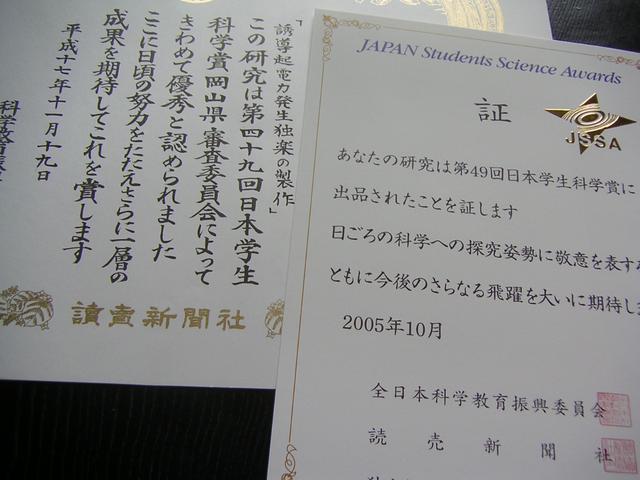 「誘導起電力発生独楽の製作」
この研究は第四十九回日本学生
科学賞岡山県審査委員会によって
きわめて優秀と認められました
ここに日頃の努力をたたえさらに一層の
成果を期待してこれを賞します
平成十七年十一月十九日
科学教育振
讀賣新聞社
JAPAN Students Science Awards
証
JSSA
あなたの研究は第49回日本学生科学賞に
出品されたことを証します
日ごろの科学への探究姿勢に敬意を表す
ともに今後のさらなる飛躍を大いに期待し
2005年10月
全日本科学教育振興委員会
読売新聞社